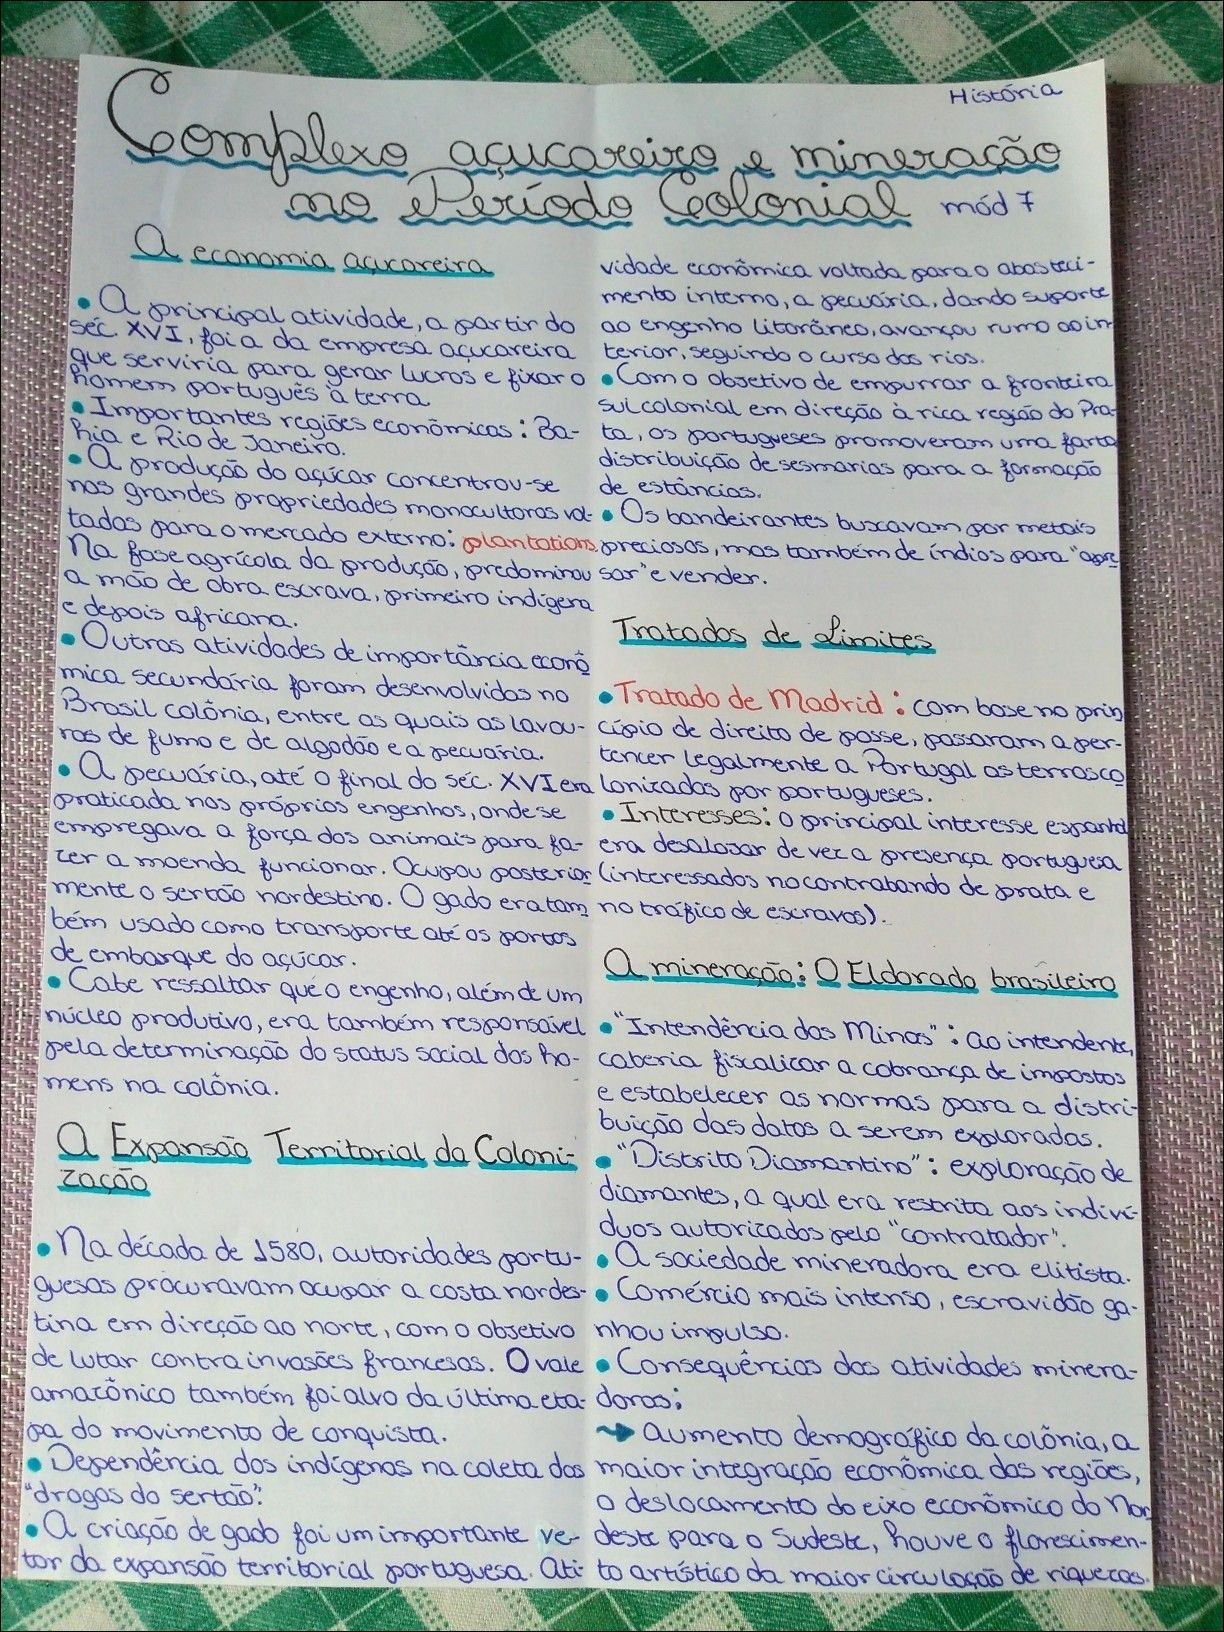 História
Complexo açucareiro e mineração
no Período Colonial mód 7
A economia açucareira
• A principal atividade, a partir do
séc. XVI, foi a da empresa açucareira
que serviria para gerar lucros e fixar o
homem português à terra
• Importantes regiões econômicas: Ba-
hia e Rio de Janeiro.
• A produção do açúcar concentrou-se
nas grandes propriedades monocultoras vol-
tadas para o mercado externo: plantations.
Na fase agrícola da produção, predominou
a mão de obra escrava, primeiro indígena
e depois africana.
• Outras atividades de importância econô
mica secundária foram desenvolvidas no
Brasil colônia, entre as quais as lavou-
ras de fumo e de algodão e a pecuária.
• A pecuária, até o final do séc. XVI era
praticada nos próprios engenhos, onde se
empregava a força dos animais para fa-
zer a moenda funcionar. Ocupou posterior
mente o sertão nordestino. O gado era tam
bém usado como transporte até os portos
de embarque do açúcar.
• Cabe ressaltar que o engenho, além de um
núcleo produtivo, era também responsável
pela determinação do status social dos ho-
mens na colônia.
A Expansão Territorial da Coloni-
zação
• Na década de 1580, autoridades portu-
guesas procuravam ocupar a costa nordes-
tina em direção ao norte, com o objetivo
de lutar contra invasões francesas. O vale
amazônico também foi alvo da última eta-
pa do movimento de conquista.
• Dependência dos indígenas na coleta das
"drogas do sertão".
• A criação de gado foi um importante ve-
tor da expansão territorial portuguesa. Ati-
vidade econômica voltada para o abasteci-
mento interno, a pecuária, dando suporte
ao engenho litorâneo, avançou rumo ao in-
terior, seguindo o curso dos rios.
• Com o objetivo de empurrar a fronteira
sul colonial em direção à rica região do Pra-
ta, os portugueses promoveram uma farta
distribuição de sesmarias para a formação
de estâncias.
• Os bandeirantes buscavam por metais
preciosos, mas também de índios para "apre
sar" e vender.
Tratados de Limites
• Tratado de Madrid: com base no prin
cípio de direito de posse, passaram a per-
tencer legalmente a Portugal as terras co
lonizadas por portugueses.
• Interesses: o principal interesse espanhol
era desalojar de vez a presença portuguesa
(interessados no contrabando de prata e
no tráfico de escravos).
A mineração: O Eldorado brasileiro
• "Intendência das Minas": ao intendente,
caberia fiscalizar a cobrança de impostos
e estabelecer as normas para a distri-
buição das datas a serem exploradas.
• "Distrito Diamantino": exploração de
diamantes, a qual era restrita aos indiví-
duos autorizados pelo "contratador".
• A sociedade mineradora era elitista.
• Comércio mais intenso, escravidão ga-
nhou impulso.
• Consequências das atividades minera-
doras:
→ aumento demográfico da colônia, a
maior integração econômica das regiões,
o deslocamento do eixo econômico do Nor
deste para o Sudeste, houve o florescimen-
to artístico da maior circulação de riquezas.